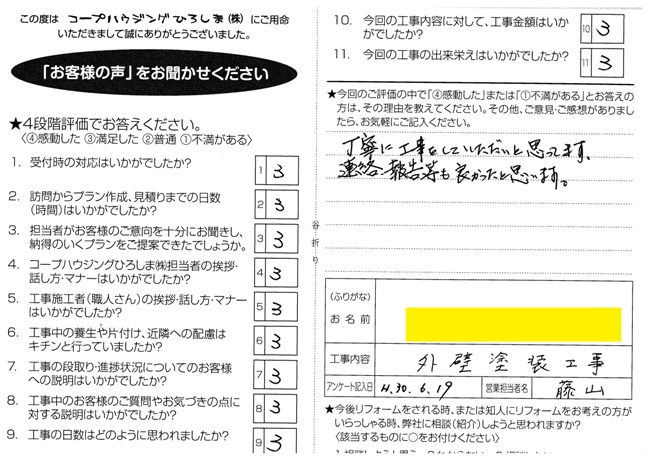 この度は コープハウジングひろしま(株) にご用命
いただきまして誠にありがとうございました。
「お客様の声」をお聞かせください
★4段階評価でお答えください。
〈④感動した ③満足した ②普通 ①不満がある〉
1. 受付時の対応はいかがでしたか?
1 3
2. 訪問からプラン作成、見積りまでの日数
(時間)はいかがでしたか?
2 3
3. 担当者がお客様のご意向を十分にお聞きし、
納得のいくプランをご提案できたでしょうか。
3 3
4. コープハウジングひろしま㈱担当者の挨拶・
話し方・マナーはいかがでしたか?
4 3
5. 工事施工者(職人さん)の挨拶・話し方・マナー
はいかがでしたか?
5 3
6. 工事中の養生や片付け、近隣への配慮は
キチンと行っていましたか?
6 3
7. 工事の段取り・進捗状況についてのお客様
への説明はいかがでしたか?
7 3
8. 工事中のお客様のご質問やお気づきの点に
対する説明はいかがでしたか?
8 3
9. 工事の日数はどのように思われましたか?
9 3
谷折り
10. 今回の工事内容に対して、工事金額はいか
がでしたか?
10 3
11. 今回の工事の出来栄えはいかがでしたか?
11 3
★今回のご評価の中で「④感動した」または「①不満がある」とお答えの
方は、その理由を教えてください。その他、ご意見・ご感想がありまし
たら、お気軽にご記入ください。
丁寧に工事をしていただいたと思ってます、
連絡・報告等も良かったと思います。
(ふりがな)
お名前
工事内容 外壁塗装工事
アンケート記入日 H.30.6.19 営業担当者名 藤山
★今後リフォームをされる時、または知人にリフォームをお考えの方が
いらっしゃる時、弊社に相談(紹介)しようと思われますか?
〈該当するものに○をお付けください〉